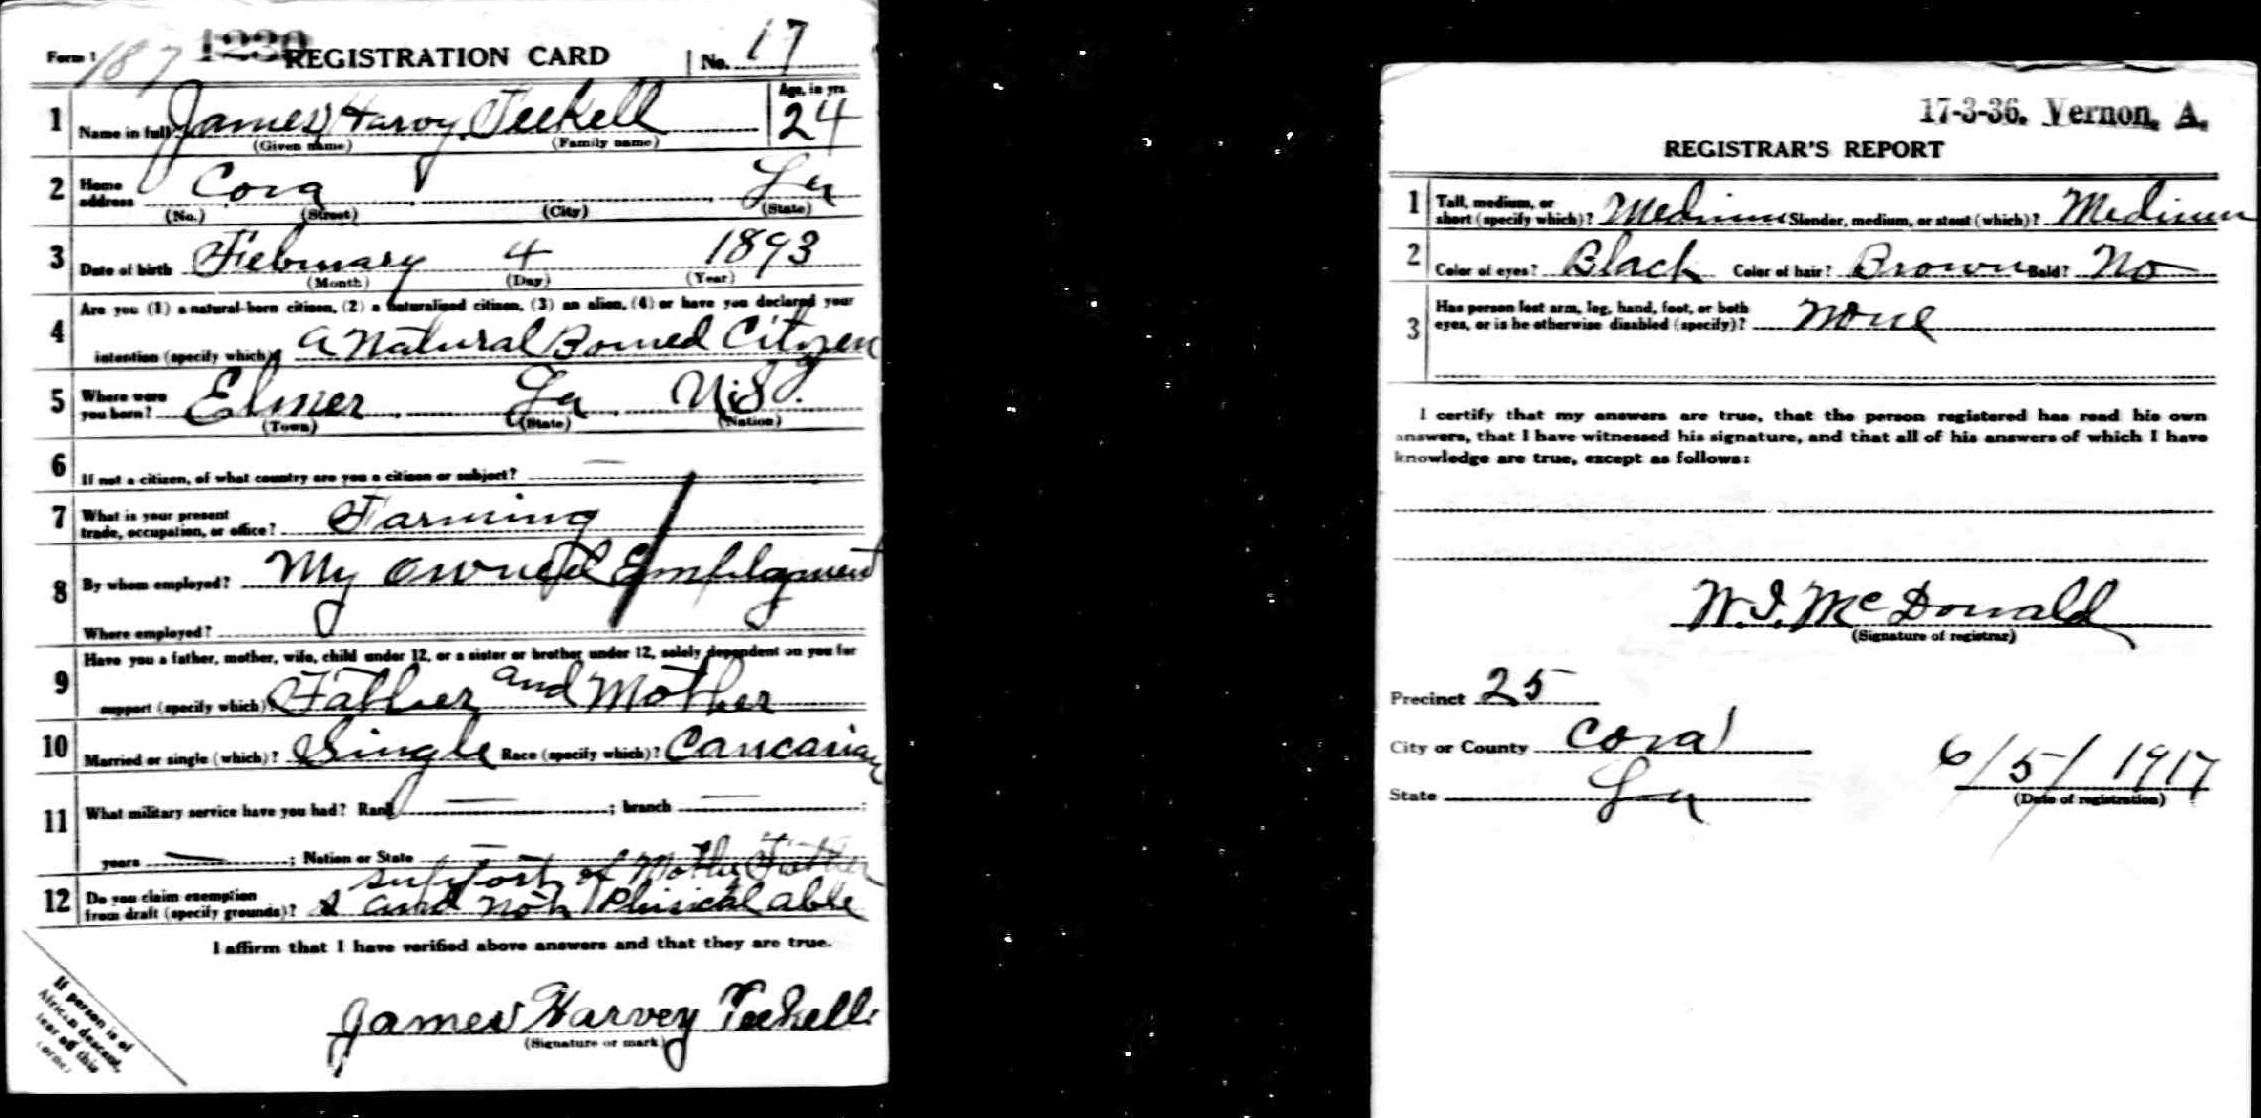 Form 1 187 1230 REGISTRATION CARD No. 17
1 Name in full James Harvy Teekell Age, in yrs. 24
(Given name) (Family name)
2 Home address Cora La
(No.) (Street) (City) (State)
3 Date of birth February 4 1893
(Month) (Day) (Year)
4 Are you (1) a natural-born citizen, (2) a naturalized citizen, (3) an alien, (4) or have you declared your
intention (specify which)? a Natural Borned Citizen
5 Where were you born? Elmer La U.S.
(Town) (State) (Nation)
6 If not a citizen, of what country are you a citizen or subject? —
7 What is your present trade, occupation, or office? Farming
8 By whom employed? My owned Employment
Where employed?
9 Have you a father, mother, wife, child under 12, or a sister or brother under 12, solely dependent on you for
support (specify which)? Father and Mother
10 Married or single (which)? Single Race (specify which)? Caucasian
11 What military service have you had? Rank — ; branch — ;
years — ; Nation or State —
support of Mother Father
12 Do you claim exemption from draft (specify grounds)? and not Phisical able
I affirm that I have verified above answers and that they are true.
James Harvey Teekell
(Signature or mark)
If person is of
African descent,
tear off this
corner.
17-3-36. Vernon, A.
REGISTRAR'S REPORT
1 Tall, medium, or short (specify which)? Medium Slender, medium, or stout (which)? Medium
2 Color of eyes? Black Color of hair? Brown Bald? No
3 Has person lost arm, leg, hand, foot, or both
eyes, or is he otherwise disabled (specify)? None
I certify that my answers are true, that the person registered has read his own
answers, that I have witnessed his signature, and that all of his answers of which I have
knowledge are true, except as follows:
W. I. McDonald
(Signature of registrar)
Precinct 25
City or County Cora
State La
6/5/1917
(Date of registration)